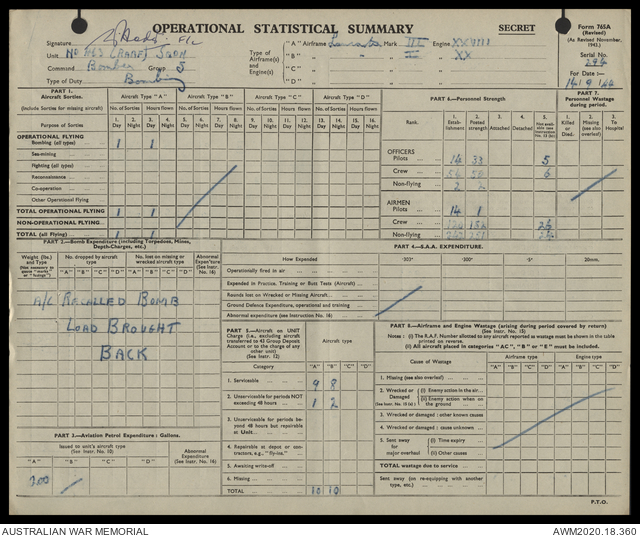 OPERATIONAL STATISTICAL SUMMARY
SECRET
Form 765A
(Revised)
(As Revised November, 1943.)
Signature F/L
Unit No 463 (RAAF) Sqdn
Command Bomber Group 5
Type of Duty Bombing
Type of Airframe(s) and Engine(s):
"A" Airframe Lancaster Mark III Engine XXVIII
"B" " " XX
"C"
"D"
Serial No.:
294
For Date :—
14/9/44
PART 1.
Aircraft Sorties.
(Include Sorties for missing aircraft)
Aircraft Type "A" Aircraft Type "B" Aircraft Type "C" Aircraft Type "D"
No. of Sorties Hours flown No. of Sorties Hours flown No. of Sorties Hours flown No. of Sorties Hours flown
Purpose of Sorties
1. Day 2. Night 3. Day 4. Night 5. Day 6. Night 7. Day 8. Night 9. Day 10. Night 11. Day 12. Night 13. Day 14. Night 15. Day 16. Night
OPERATIONAL FLYING
Bombing (all types) 1 1
Sea-mining
Fighting (all types)
Reconnaissance
Co-operation
Other Operational Flying
TOTAL OPERATIONAL FLYING 1 1
NON-OPERATIONAL FLYING
TOTAL (all Flying) 1 1
PART 6.—Personnel Strength
Rank.
1. Establishment 2. Posted strength 3. Attached 4. Detached 5. Non available (See Instruc. No. 13 (b))
OFFICERS
Pilots 14 33 5
Crew 56 58 6
Non-flying 2 2
AIRMEN
Pilots 14 1
Crew 120 152 26
Non-flying
PART 7.
Personnel Wastage during period.
1. Killed or Died. 2. Missing (see also overleaf) 3. To Hospital
PART 2.—Bomb Expenditure (including Torpedoes, Mines, Depth-Charges, etc.)
Weight (lbs.) and Type
No. dropped by aircraft type
No. lost on missing or wrecked aircraft type
Abnormal Expenditure (See Instr. No. 16)
"A" "B" "C" "D" "A" "B" "C" "D"
A/C RECALLED BOMB
LOAD BROUGHT
BACK
PART 4.—S.A.A. EXPENDITURE.
How Expended
·303" ·300" ·5" 20mm.
Operationally fired in air
Expended in Practice, Training or Butt Tests (Aircraft)
Rounds lost on Wrecked or Missing Aircraft
Ground Defence Expenditure, operational and training
Abnormal expenditure (see Instruction No. 16)
PART 5.—Aircraft on UNIT Charge (i.e., excluding aircraft transferred to 43 Group Deposit Account or to the charge of any other unit)
(See Instr. 12)
Aircraft type
Category "A" "B" "C" "D"
1. Serviceable 9 8
2. Unserviceable for periods NOT exceeding 48 hours 1 2
3. Unserviceable for periods beyond 48 hours but repairable at Unit
4. Repairable at depot or contractors, e.g., "fly-ins."
5. Awaiting write-off
6. Missing
TOTAL 10 10
PART 8.—Airframe and Engine Wastage (arising during period covered by return)
Notes : (i) The R.A.F. Number allotted to any aircraft reported as wastage must be shown in the table printed on reverse.
(ii) All aircraft placed in categories "AC", "B" or "E" must be included.
Cause of Wastage
Airframe type Engine type
"A" "B" "C" "D" "A" "B" "C" "D"
1. Missing (see also overleaf)
2. Wrecked or Damaged (i) Enemy action in the air
(ii) Enemy action when on the ground
3. Wrecked or damaged : other known causes
4. Wrecked or damaged : cause unknown
5. Sent away for major overhaul (i) Time expiry
(ii) Other causes
TOTAL wastage due to service
Sent away (on re-equipping with another type, etc.)
PART 3.—Aviation Petrol Expenditure : Gallons.
Issued to unit's aircraft type
(See Instr. No. 10)
Abnormal Expenditure
(See Instr. No. 16)
"A" "B" "C" "D"
300
P.T.O.
AUSTRALIAN WAR MEMORIAL
AWM2020.18.360